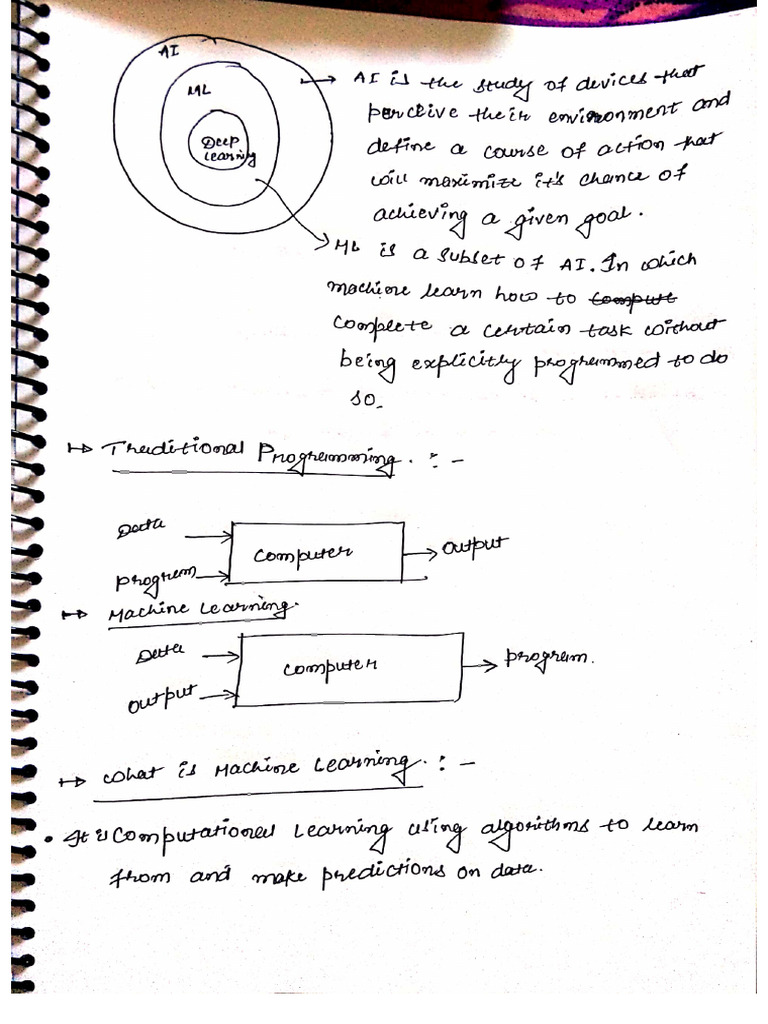 AI
ML
Deep
Learning
AI is the study of devices that
perceive their environment and
define a course of action that
will maximize it's chance of
achieving a given goal.
ML is a subset of AI. In which
machine learn how to compute
complete a certain task without
being explicitly programmed to do
so.
Traditional Programming. : -
Data
Computer
Output
Program
Machine Learning.
Data
Computer
Program.
Output
What is Machine Learning. : -
• It is Computational Learning using algorithms to learn
from and make predictions on data.